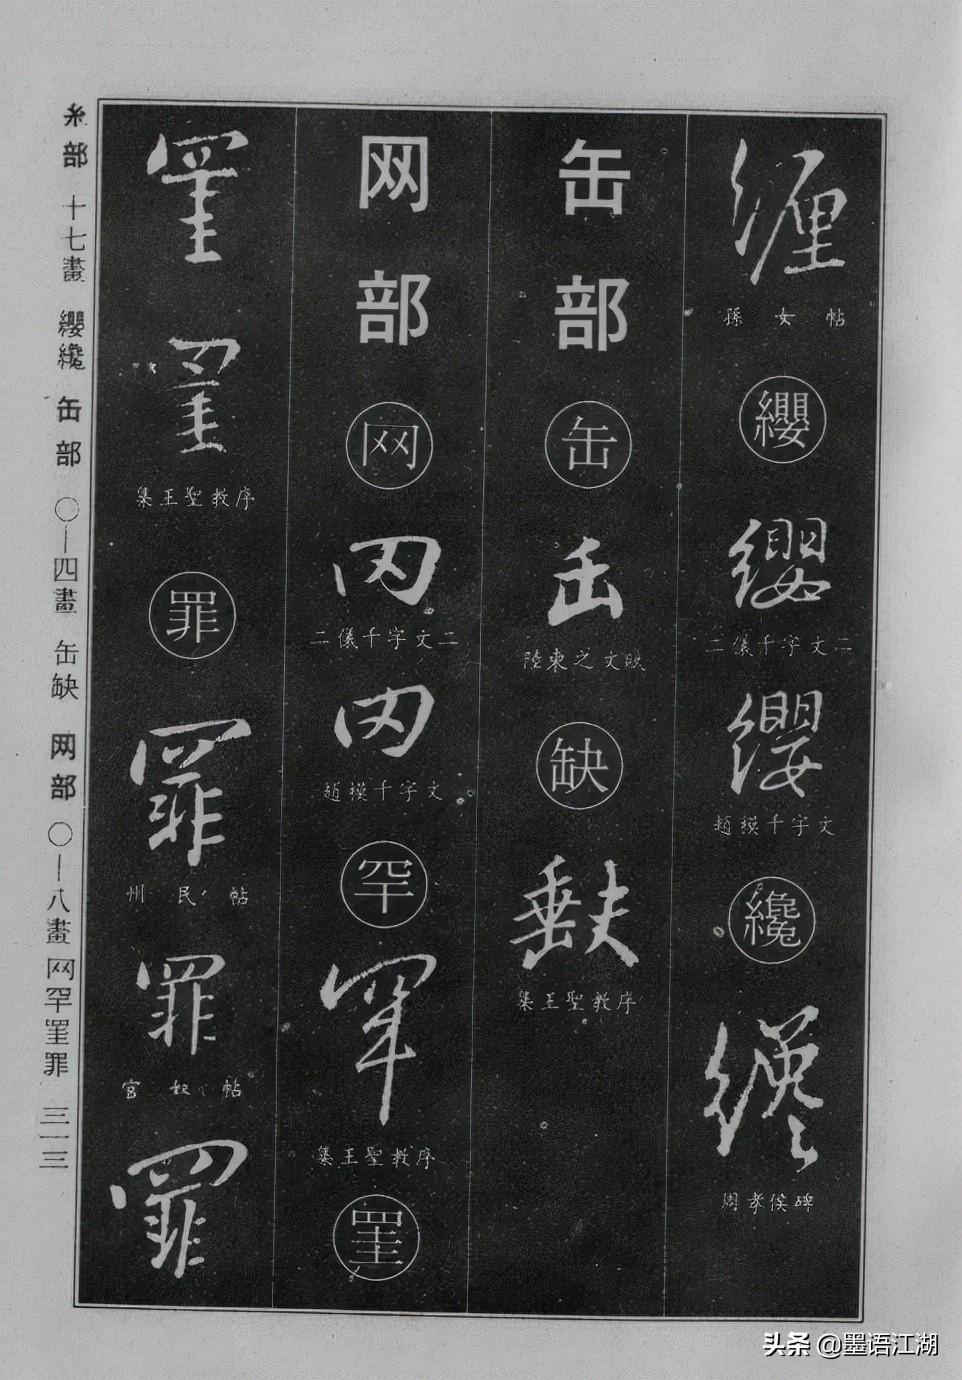 糸部 十七畫 纓纔 缶部 〇—四畫 缶缺 网部 〇—八畫 网罕罣罪 三一三
纏
孫女帖
纓
纓
二儀千字文二
纓
趙模千字文
纔
纔
周孝侯碑
缶部
缶
缶
陸柬之文賦
缺
缺
集王聖教序
网部
网
网
二儀千字文二
网
趙模千字文
罕
罕
集王聖教序
罣
罣
罣
集王聖教序
罪
罪
州民帖
罪
官奴帖
罪
头条 @墨语江湖